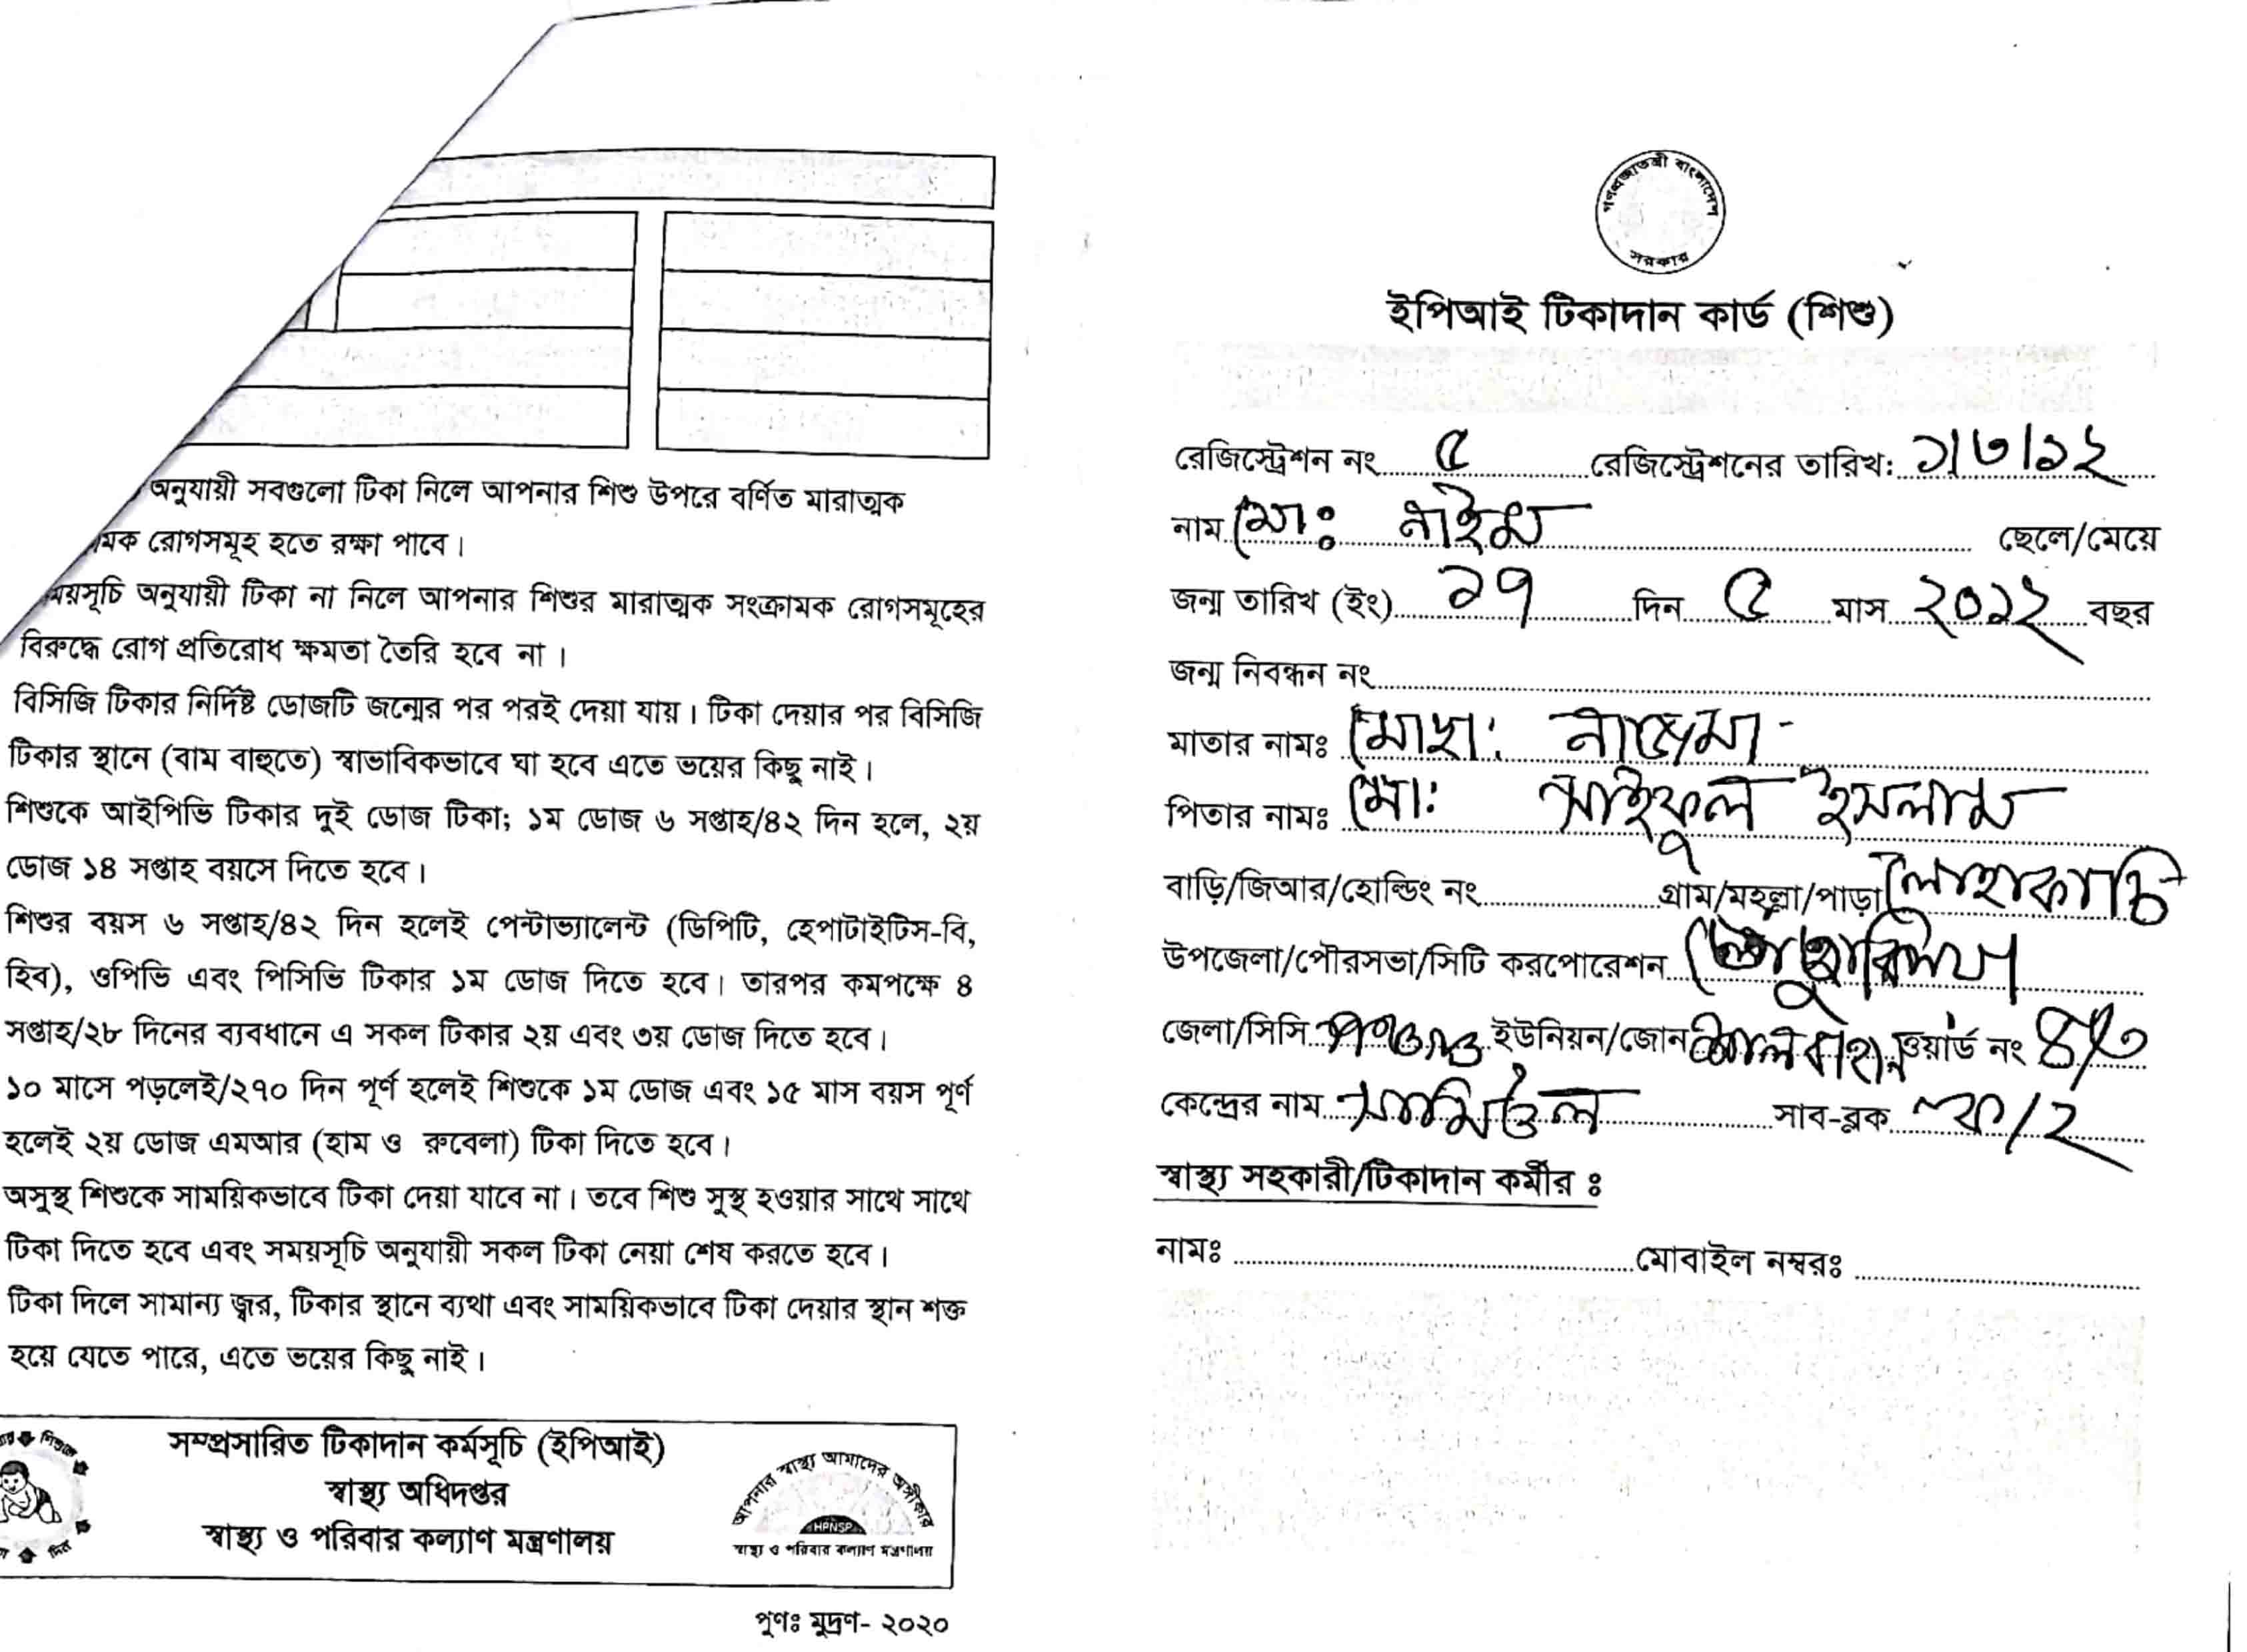 অনুযায়ী সবগুলো টিকা নিলে আপনার শিশু উপরে বর্ণিত মারাত্মক
মক রোগসমূহ হতে রক্ষা পাবে।
ময়সূচি অনুযায়ী টিকা না নিলে আপনার শিশুর মারাত্মক সংক্রামক রোগসমূহের
বিরুদ্ধে রোগ প্রতিরোধ ক্ষমতা তৈরি হবে না।
বিসিজি টিকার নির্দিষ্ট ডোজটি জন্মের পর পরই দেয়া যায়। টিকা দেয়ার পর বিসিজি
টিকার স্থানে (বাম বাহুতে) স্বাভাবিকভাবে ঘা হবে এতে ভয়ের কিছু নাই।
শিশুকে আইপিভি টিকার দুই ডোজ টিকা; ১ম ডোজ ৬ সপ্তাহ/৪২ দিন হলে, ২য়
ডোজ ১৪ সপ্তাহ বয়সে দিতে হবে।
শিশুর বয়স ৬ সপ্তাহ/৪২ দিন হলেই পেন্টাভ্যালেন্ট (ডিপিটি, হেপাটাইটিস-বি,
হিব), ওপিভি এবং পিসিভি টিকার ১ম ডোজ দিতে হবে। তারপর কমপক্ষে ৪
সপ্তাহ/২৮ দিনের ব্যবধানে এ সকল টিকার ২য় এবং ৩য় ডোজ দিতে হবে।
১০ মাসে পড়লেই/২৭০ দিন পূর্ণ হলেই শিশুকে ১ম ডোজ এবং ১৫ মাস বয়স পূর্ণ
হলেই ২য় ডোজ এমআর (হাম ও রুবেলা) টিকা দিতে হবে।
অসুস্থ শিশুকে সাময়িকভাবে টিকা দেয়া যাবে না। তবে শিশু সুস্থ হওয়ার সাথে সাথে
টিকা দিতে হবে এবং সময়সূচি অনুযায়ী সকল টিকা নেয়া শেষ করতে হবে।
টিকা দিলে সামান্য জ্বর, টিকার স্থানে ব্যথা এবং সাময়িকভাবে টিকা দেয়ার স্থান শক্ত
হয়ে যেতে পারে, এতে ভয়ের কিছু নাই।
সম্প্রসারিত টিকাদান কর্মসূচি (ইপিআই)
স্বাস্থ্য অধিদপ্তর
স্বাস্থ্য ও পরিবার কল্যাণ মন্ত্রণালয়
আপনার স্বাস্থ্য আমাদের অঙ্গীকার
HPNSP
স্বাস্থ্য ও পরিবার কল্যাণ মন্ত্রণালয়
পুণঃ মুদ্রণ- ২০২০
গণপ্রজাতন্ত্রী বাংলাদেশ
সরকার
ইপিআই টিকাদান কার্ড (শিশু)
রেজিস্ট্রেশন নং ৫ রেজিস্ট্রেশনের তারিখ: ১/৩/১২
নাম মোঃ নাইম ছেলে/মেয়ে
জন্ম তারিখ (ইং) ১৭ দিন ৫ মাস ২০১২ বছর
জন্ম নিবন্ধন নং
মাতার নামঃ মোছা: নাজমা
পিতার নামঃ মো: সাইফুল ইসলাম
বাড়ি/জিআর/হোল্ডিং নং গ্রাম/মহল্লা/পাড়া লোহাকাচি
উপজেলা/পৌরসভা/সিটি করপোরেশন
জেলা/সিসি ইউনিয়ন/জোন ওয়ার্ড নং
কেন্দ্রের নাম সাব-ব্লক ক/২
স্বাস্থ্য সহকারী/টিকাদান কর্মীর ঃ
নামঃ মোবাইল নম্বরঃ